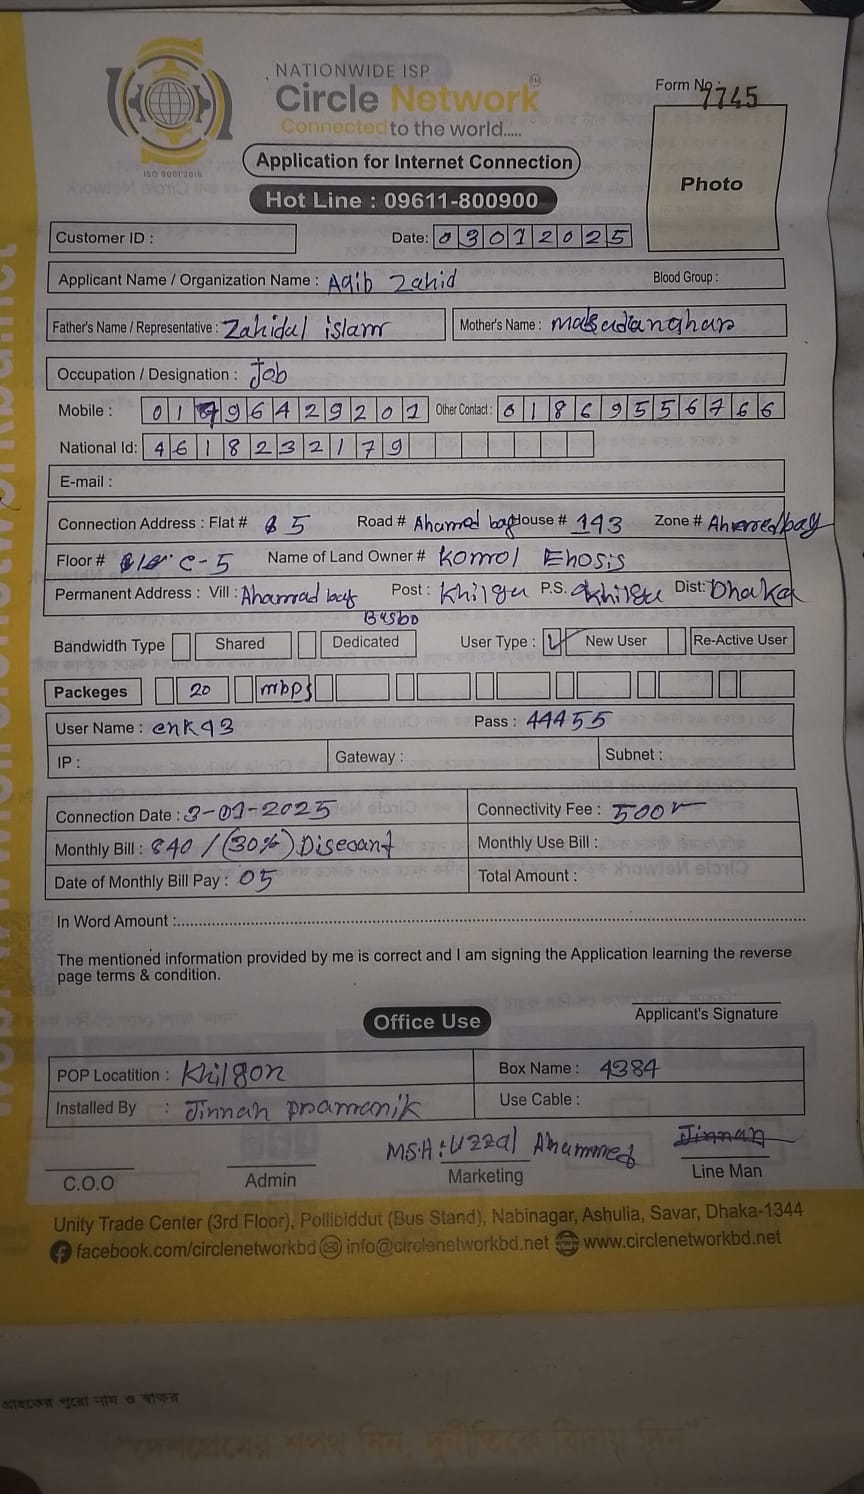 NATIONWIDE ISP
Circle Network
Connected to the world.....
ISO 9001:2015
Form No: 7745
Application for Internet Connection
Hot Line : 09611-800900
Photo
Customer ID :
Date: 03012025
Applicant Name / Organization Name : Aqib Zahid Blood Group :
Father's Name / Representative : Zahidul islam Mother's Name :
Occupation / Designation : Job
Mobile : 01796429201 Other Contact : 01869556766
National Id: 4618232179
E-mail :
Connection Address : Flat # 5 Road # Ahamed bag House # 143 Zone #
Floor # C-5 Name of Land Owner # Komol Ehosis
Permanent Address : Vill : Ahamad bag Post : Khilgu P.S. Khilgu Dist: Dhaka
Basbo
Bandwidth Type Shared Dedicated User Type : New User Re-Active User
Packeges 20 mbps
User Name : enk93 Pass : 44455
IP : Gateway : Subnet :
Connection Date : 3-01-2025 Connectivity Fee : 500
Monthly Bill : 840 / (30%) Diseoant Monthly Use Bill :
Date of Monthly Bill Pay : 05 Total Amount :
In Word Amount :
The mentioned information provided by me is correct and I am signing the Application learning the reverse
page terms & condition.
Applicant's Signature
Office Use
POP Locatition : Khilgon Box Name : 4384
Installed By : Jinnah pramanik Use Cable :
MSH : Uzzal Ahammed Jinnah
C.O.O Admin Marketing Line Man
Unity Trade Center (3rd Floor), Pollibiddut (Bus Stand), Nabinagar, Ashulia, Savar, Dhaka-1344
facebook.com/circlenetworkbd info@circlenetworkbd.net www.circlenetworkbd.net
গ্রাহকের পুরো নাম ও স্বাক্ষর
"দেশপ্রেমের শপথ নিন, দুর্নীতিকে বিদায় দিন"